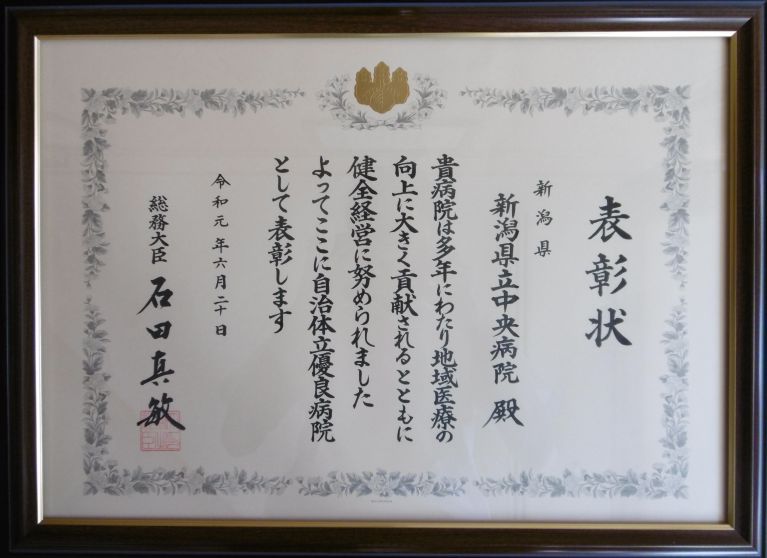 表彰状
新潟県
新潟県立中央病院 殿
貴病院は多年にわたり地域医療の
向上に大きく貢献されるとともに
健全経営に努められました
よってここに自治体立優良病院
として表彰します
令和元年六月二十日
総務大臣 石田真敏